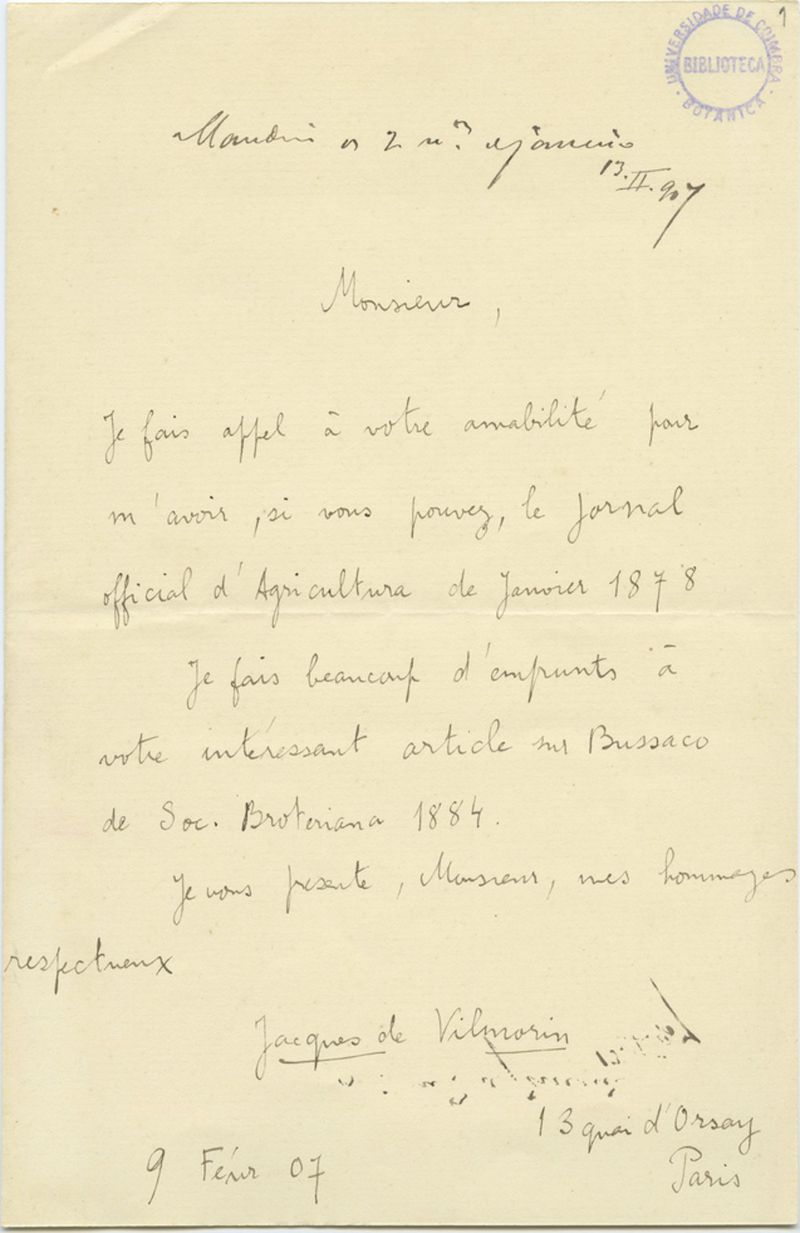 1
UNIVERSIDADE DE COIMBRA
BIBLIOTECA
BOTANICA
Mandei os 2 nos de janeiro
13.II.907
Monsieur,
Je fais appel à votre amabilité pour
m'avoir, si vous pouvez, le Jornal
official d'Agricultura de Janvier 1878
Je fais beaucoup d'emprunts à
votre intéressant article sur Bussaco
de Soc. Broteriana 1884.
Je vous présente, Monsieur, mes hommages
respectueux
Jacques de Vilmorin
13 quai d'Orsay
9 Févr 07 Paris